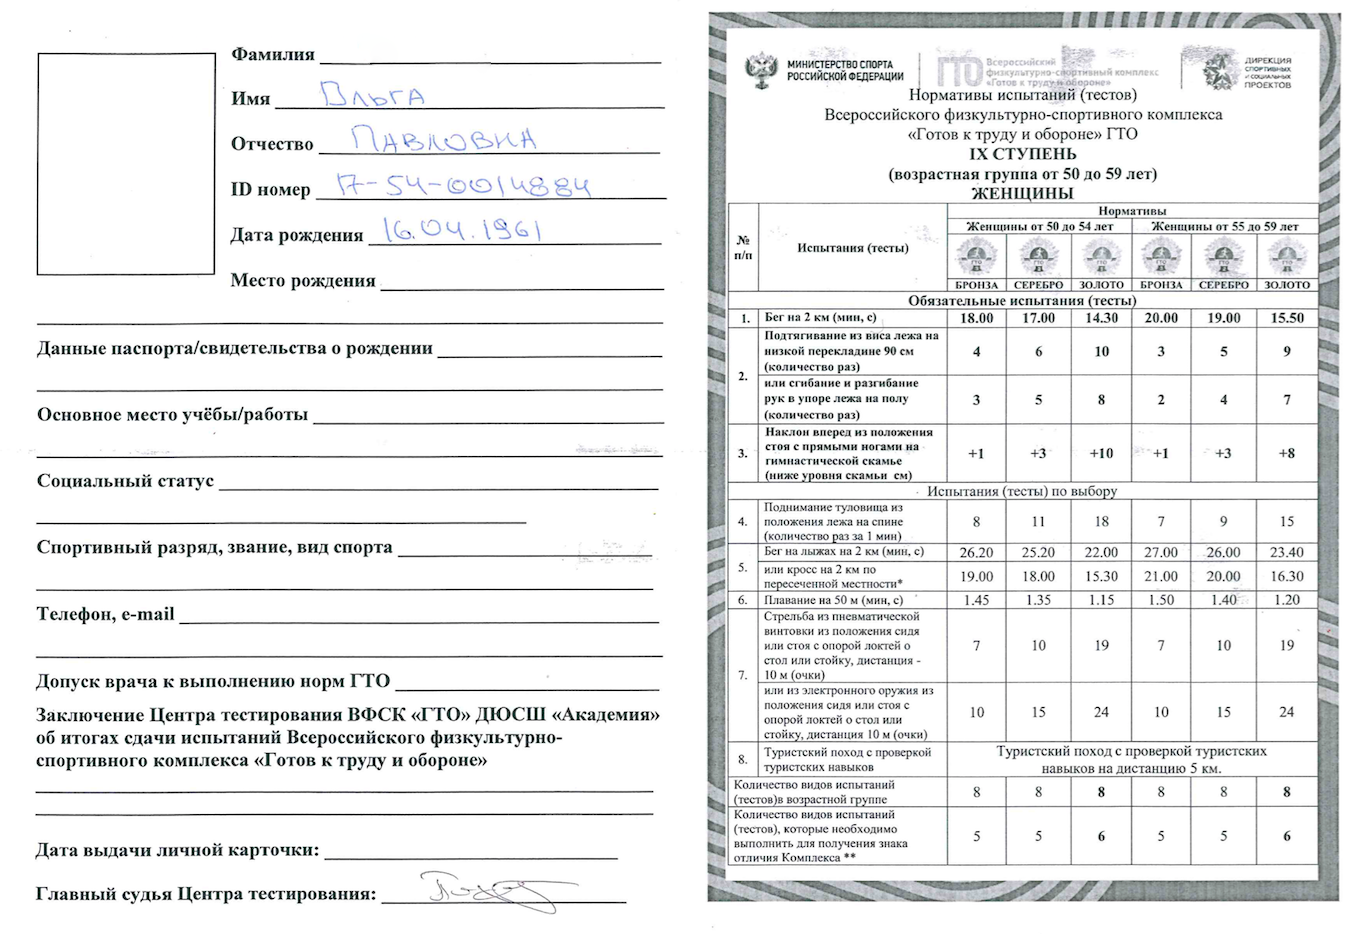 Фамилия
Имя Ольга
Отчество Павловна
ID номер 17-54-0014884
Дата рождения 16.04.1961
Место рождения
Данные паспорта/свидетельства о рождении
Основное место учёбы/работы
Социальный статус
Спортивный разряд, звание, вид спорта
Телефон, e-mail
Допуск врача к выполнению норм ГТО
Заключение Центра тестирования ВФСК «ГТО» ДЮСШ «Академия»
об итогах сдачи испытаний Всероссийского физкультурно-
спортивного комплекса «Готов к труду и обороне»
Дата выдачи личной карточки:
Главный судья Центра тестирования:
МИНИСТЕРСТВО СПОРТА
РОССИЙСКОЙ ФЕДЕРАЦИИ
ГТО
Всероссийский
физкультурно-спортивный комплекс
«Готов к труду и обороне»
ДИРЕКЦИЯ
СПОРТИВНЫХ
и СОЦИАЛЬНЫХ
ПРОЕКТОВ
Нормативы испытаний (тестов)
Всероссийского физкультурно-спортивного комплекса
«Готов к труду и обороне» ГТО
IX СТУПЕНЬ
(возрастная группа от 50 до 59 лет)
ЖЕНЩИНЫ
№ п/п Испытания (тесты) Нормативы
Женщины от 50 до 54 лет Женщины от 55 до 59 лет
ГТО ГТО ГТО ГТО ГТО ГТО
БРОНЗА СЕРЕБРО ЗОЛОТО БРОНЗА СЕРЕБРО ЗОЛОТО
Обязательные испытания (тесты)
1. Бег на 2 км (мин, с) 18.00 17.00 14.30 20.00 19.00 15.50
2. Подтягивание из виса лежа на
низкой перекладине 90 см
(количество раз) 4 6 10 3 5 9
или сгибание и разгибание
рук в упоре лежа на полу
(количество раз) 3 5 8 2 4 7
3. Наклон вперед из положения
стоя с прямыми ногами на
гимнастической скамье
(ниже уровня скамьи см) +1 +3 +10 +1 +3 +8
Испытания (тесты) по выбору
4. Поднимание туловища из
положения лежа на спине
(количество раз за 1 мин) 8 11 18 7 9 15
5. Бег на лыжах на 2 км (мин, с) 26.20 25.20 22.00 27.00 26.00 23.40
или кросс на 2 км по
пересеченной местности* 19.00 18.00 15.30 21.00 20.00 16.30
6. Плавание на 50 м (мин, с) 1.45 1.35 1.15 1.50 1.40 1.20
7. Стрельба из пневматической
винтовки из положения сидя
или стоя с опорой локтей о
стол или стойку, дистанция -
10 м (очки) 7 10 19 7 10 19
или из электронного оружия из
положения сидя или стоя с
опорой локтей о стол или
стойку, дистанция 10 м (очки) 10 15 24 10 15 24
8. Туристский поход с проверкой
туристских навыков
Туристский поход с проверкой туристских
навыков на дистанцию 5 км.
Количество видов испытаний
(тестов)в возрастной группе 8 8 8 8 8 8
Количество видов испытаний
(тестов), которые необходимо
выполнить для получения знака
отличия Комплекса ** 5 5 6 5 5 6